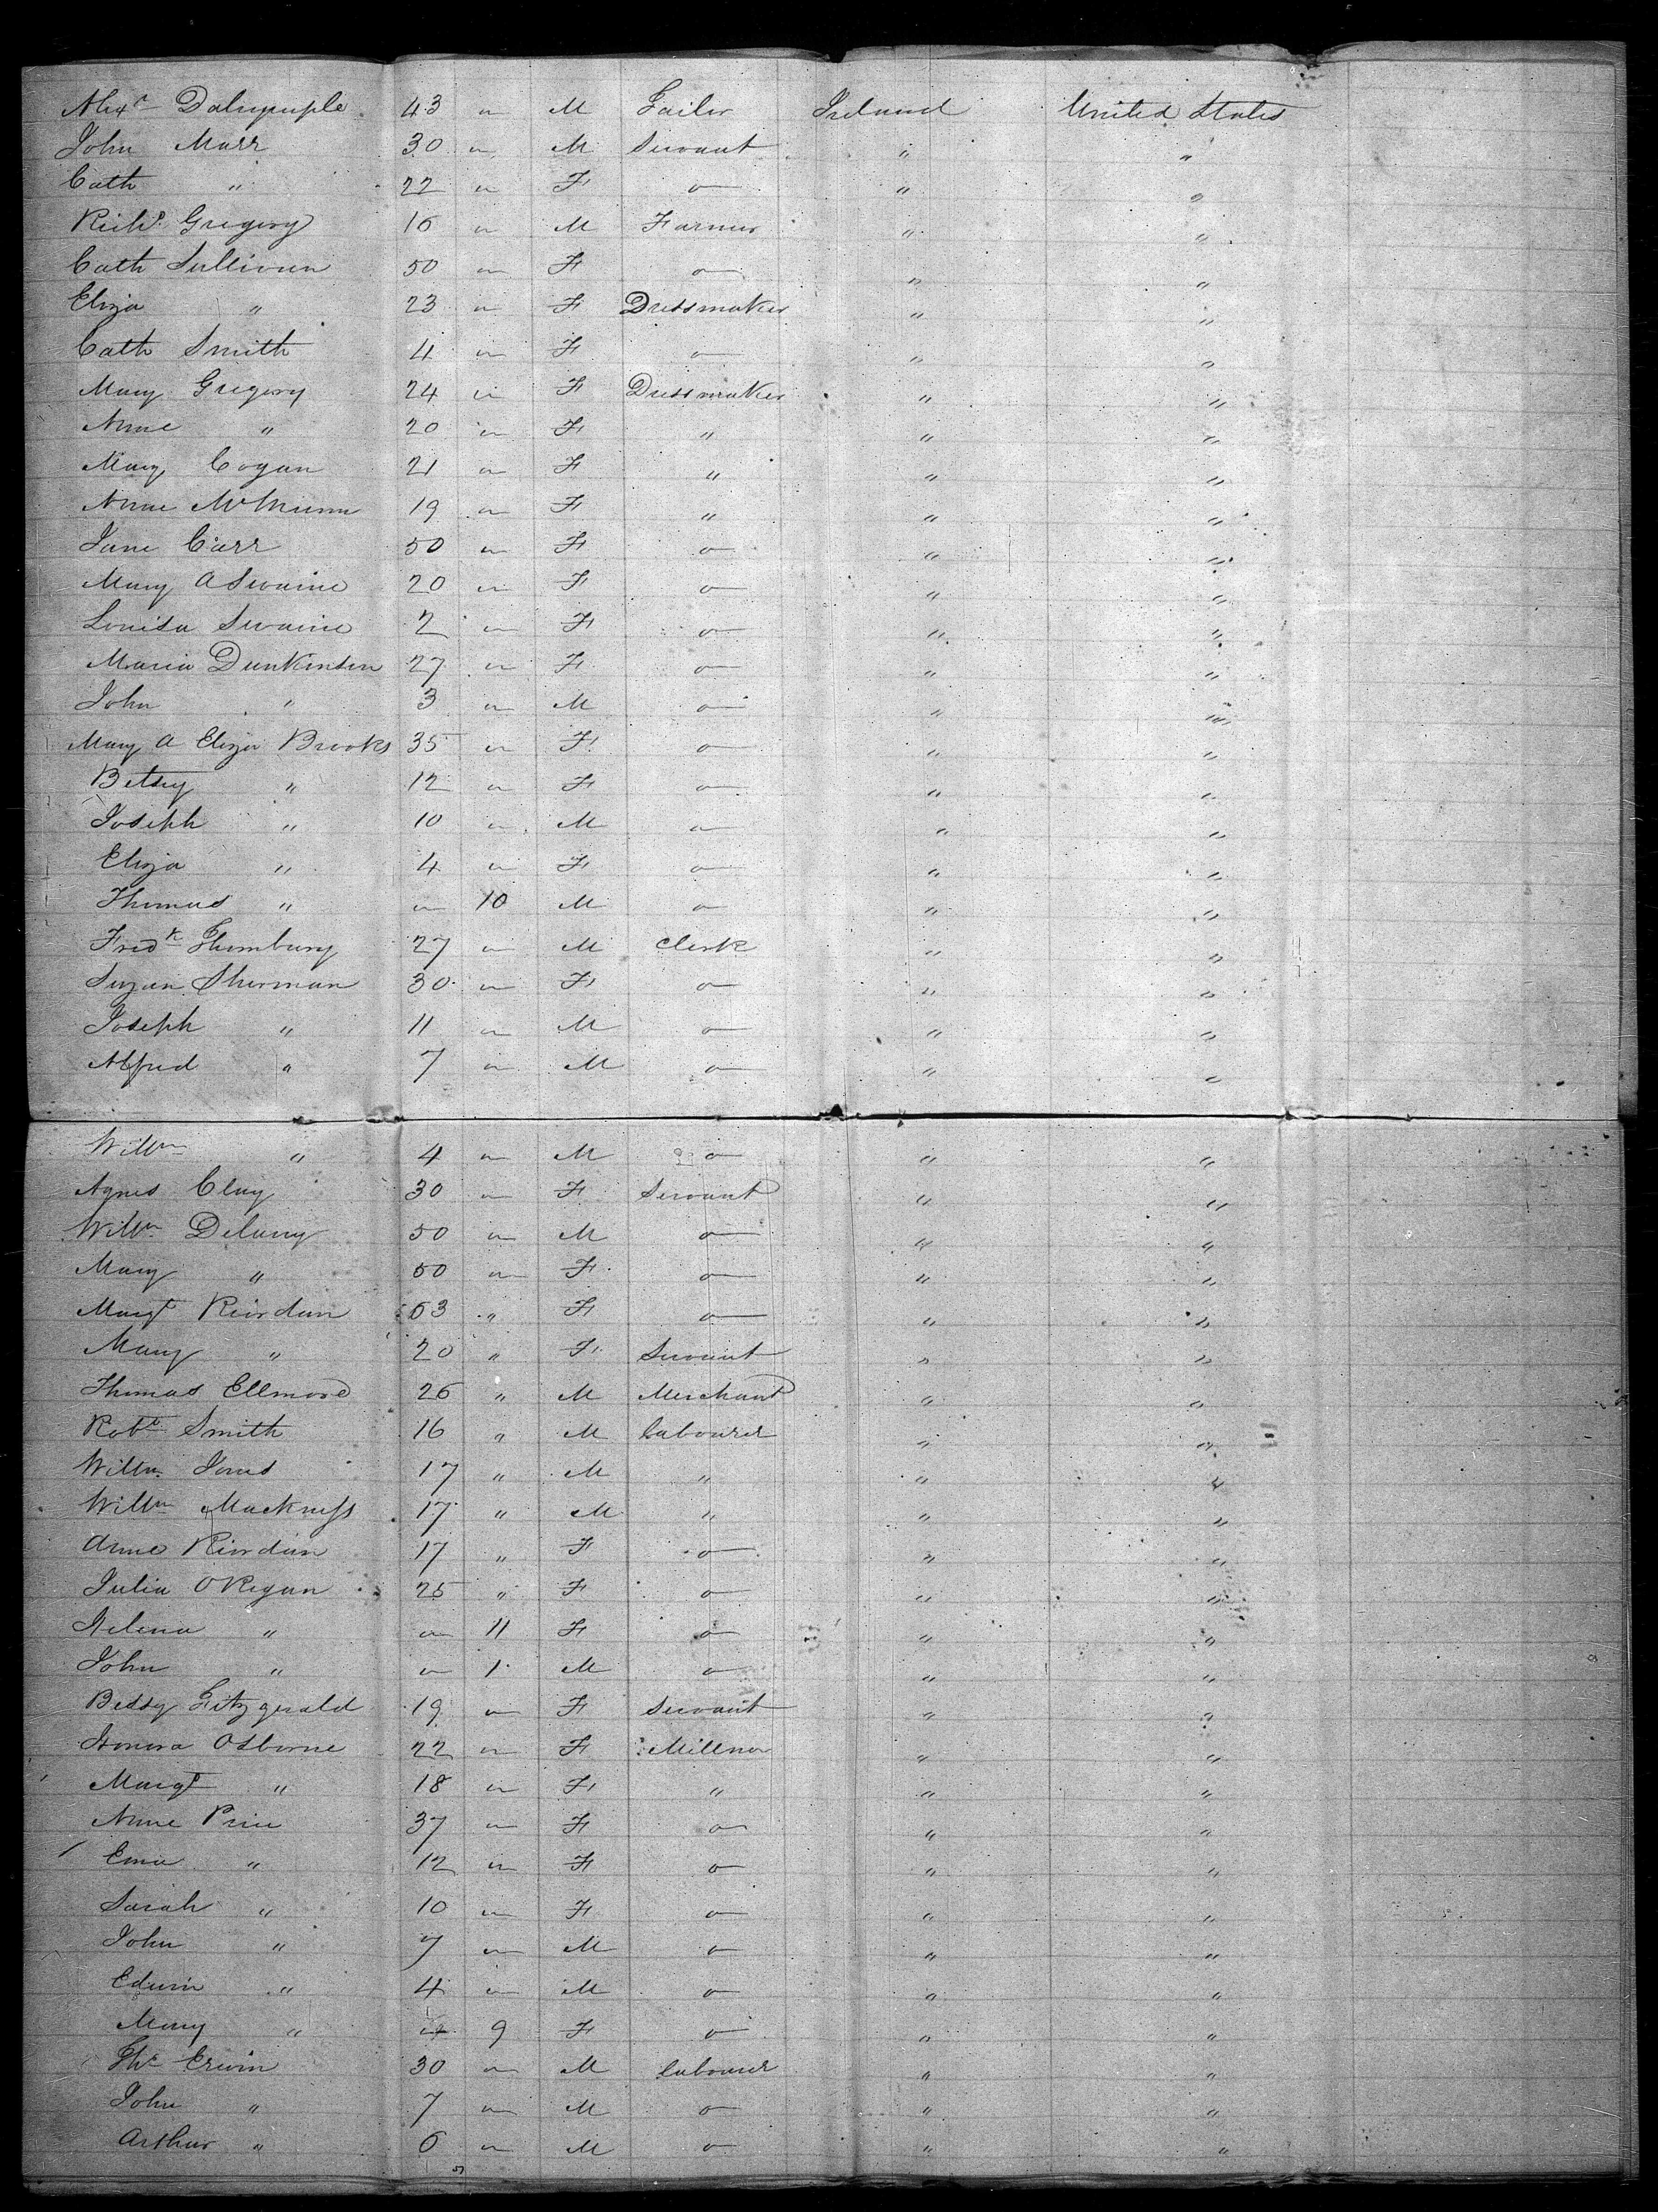 Alexr Dalrymple 43 " M Tailor Ireland United States
John Marr 30 " M Servant " "
Cath " 22 " F o " "
Richd. Gregory 16 " M Farmer " "
Cath Sullivan 50 " F o " "
Eliza " 23 " F Dressmaker " "
Cath Smith 4 " F o " "
Mary Gregory 24 " F Dressmaker " "
Anne " 20 " F " " "
Mary Cogan 21 " F " " "
Anne 19 " F " " "
Jane Carr 50 " F o " "
Mary A Swaine 20 " F o " "
Louisa Swaine 2 " F o " "
Maria Dunkinson 27 " F o " "
John " 3 " M o " "
Mary A Eliza Brooks 35 " F o " "
Betsey " 12 " F o " "
Joseph " 10 " M o " "
Eliza " 4 " F o " "
Thomas " " 10 M o " "
Fredk Thornbury 27 " M Clerk " "
Suzan Sherman 30 " F o " "
Joseph " 11 " M o " "
Alfred " 7 " M o " "
Willm " 4 " M o " "
Agnes Clay 30 " F Servant " "
Willm Delany 50 " M o " "
Mary " 50 " F o " "
Margt Riordan 53 " F o " "
Mary " 20 " F Servant " "
Thomas Ellmore 26 " M Merchant " "
Robt Smith 16 " M labourer " "
Willm. Jones 17 " M " " "
Willm Mackness 17 " M " " "
Anne Riordan 17 " F o " "
Julia ORegan 25 " F o " "
Helena " " 11 F o " "
John " " 1 M o " "
Bessy Fitzgerald 19 " F Servant " "
Honora Osborne 22 " F Millner " "
Margt " 18 " F " " "
Anne Price 37 " F o " "
Ema " 12 " F o " "
Sarah " 10 " F o " "
John " 7 " M o " "
Edwin " 4 " M o " "
Mary " " 9 F o " "
Ths Erwin 30 " M labourer " "
John " 7 " M o " "
Arthur " 6 " M o " "